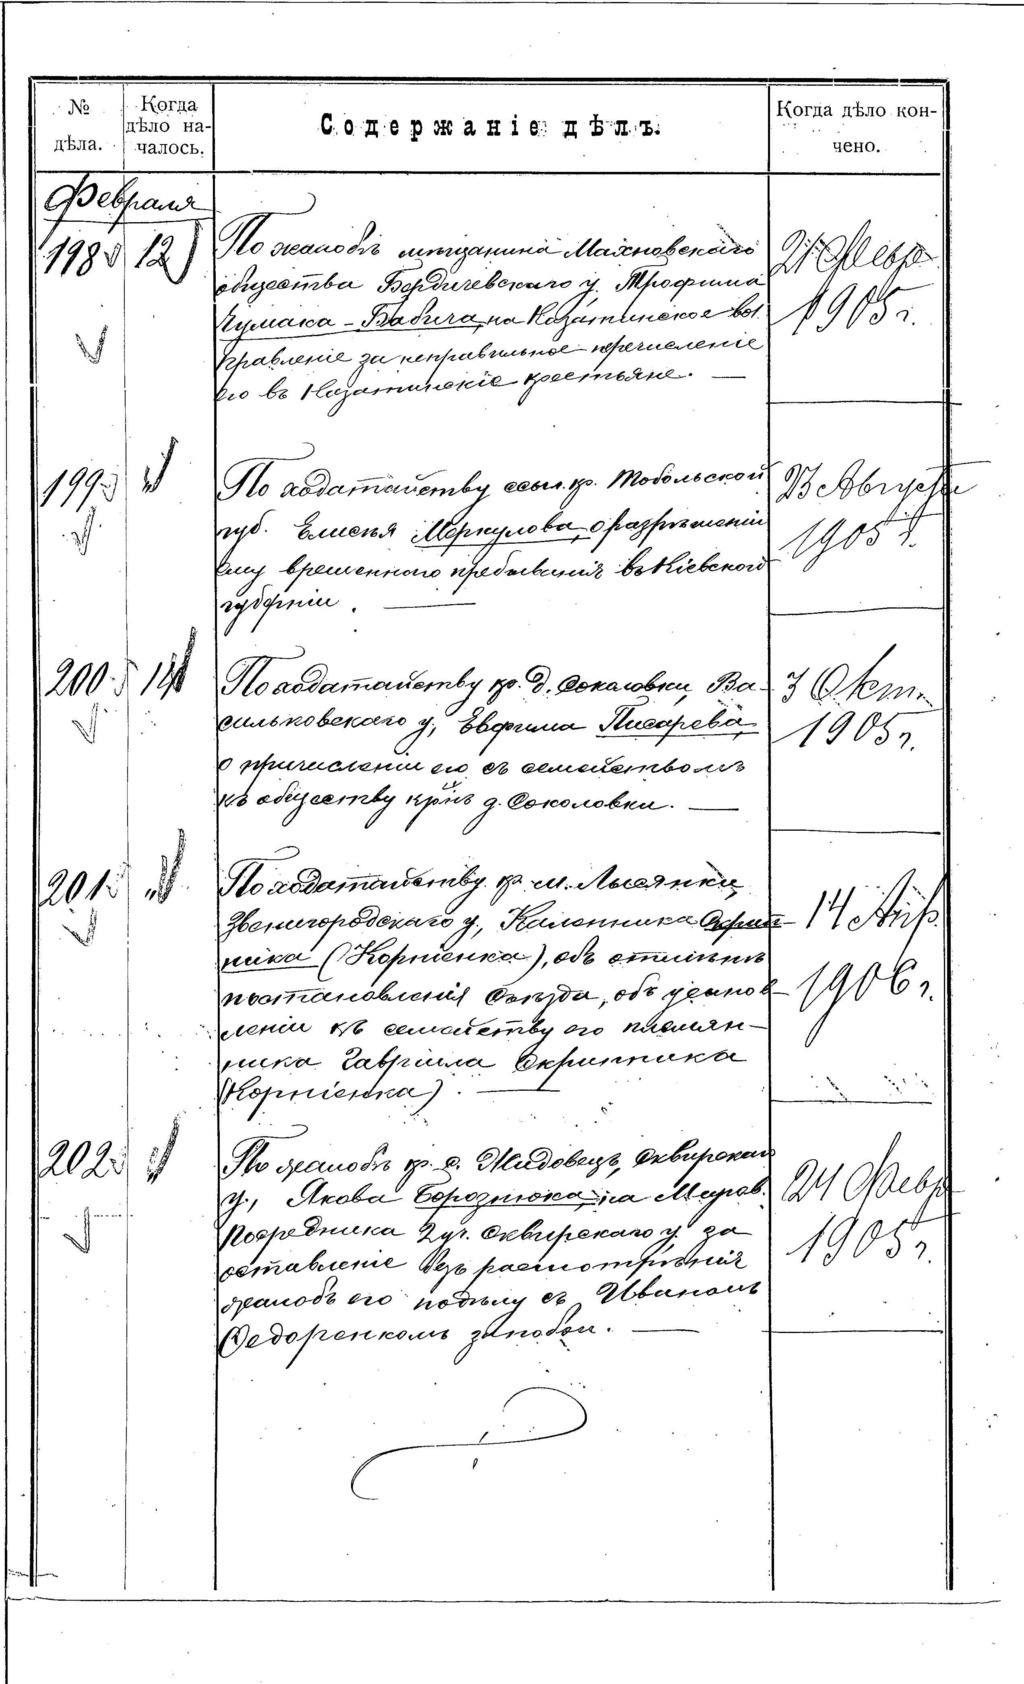 № дѣла.
Когда дѣло началось.
Содержаніе дѣлъ.
Когда дѣло кончено.
Февраля
198 12
По жалобѣ мѣщанина Махновскаго
21 Февр
общества Бердичевскаго у. Трофима
Чумака-Бабича на Казатинское вол.
1905 г.
правленіе за неправильное перечисленіе
его въ Казатинскіе крестьяне. —
199
По ходатайству ссыл. кр. Тобольской
23 Августа
губ. Елисея Меркулова о разрѣшеніи
1905 г.
ему временнаго пребыванія въ Кіевской
губерніи. —
200 14
По ходатайству кр. д. Соколовки, Ва-
3 Окт.
сильковскаго у, Евфима Писарева
1905 г.
о причисленіи его съ семействомъ
къ обществу крнъ д. Соколовки. —
201
По ходатайству кр. м. Лысянки,
Звенигородскаго у., Каленника Скрип-
14 Апр.
ника (Корніенка), объ отмѣнѣ
постановленія Съѣзда, объ усынов-
1906 г.
леніи къ семейству его племян-
ника Гавріила Скрипника
(Корніенка). —
202
По жалобѣ кр. с. Жидовецъ, Сквирскаго
у., Якова Борознюка, на Миров.
24 Февр
Посредника 2 уч. Сквирскаго у. за
1905 г.
оставленіе безъ разсмотрѣнія
жалобъ его по дѣлу съ Иваномъ
Федоренкомъ за побои. —